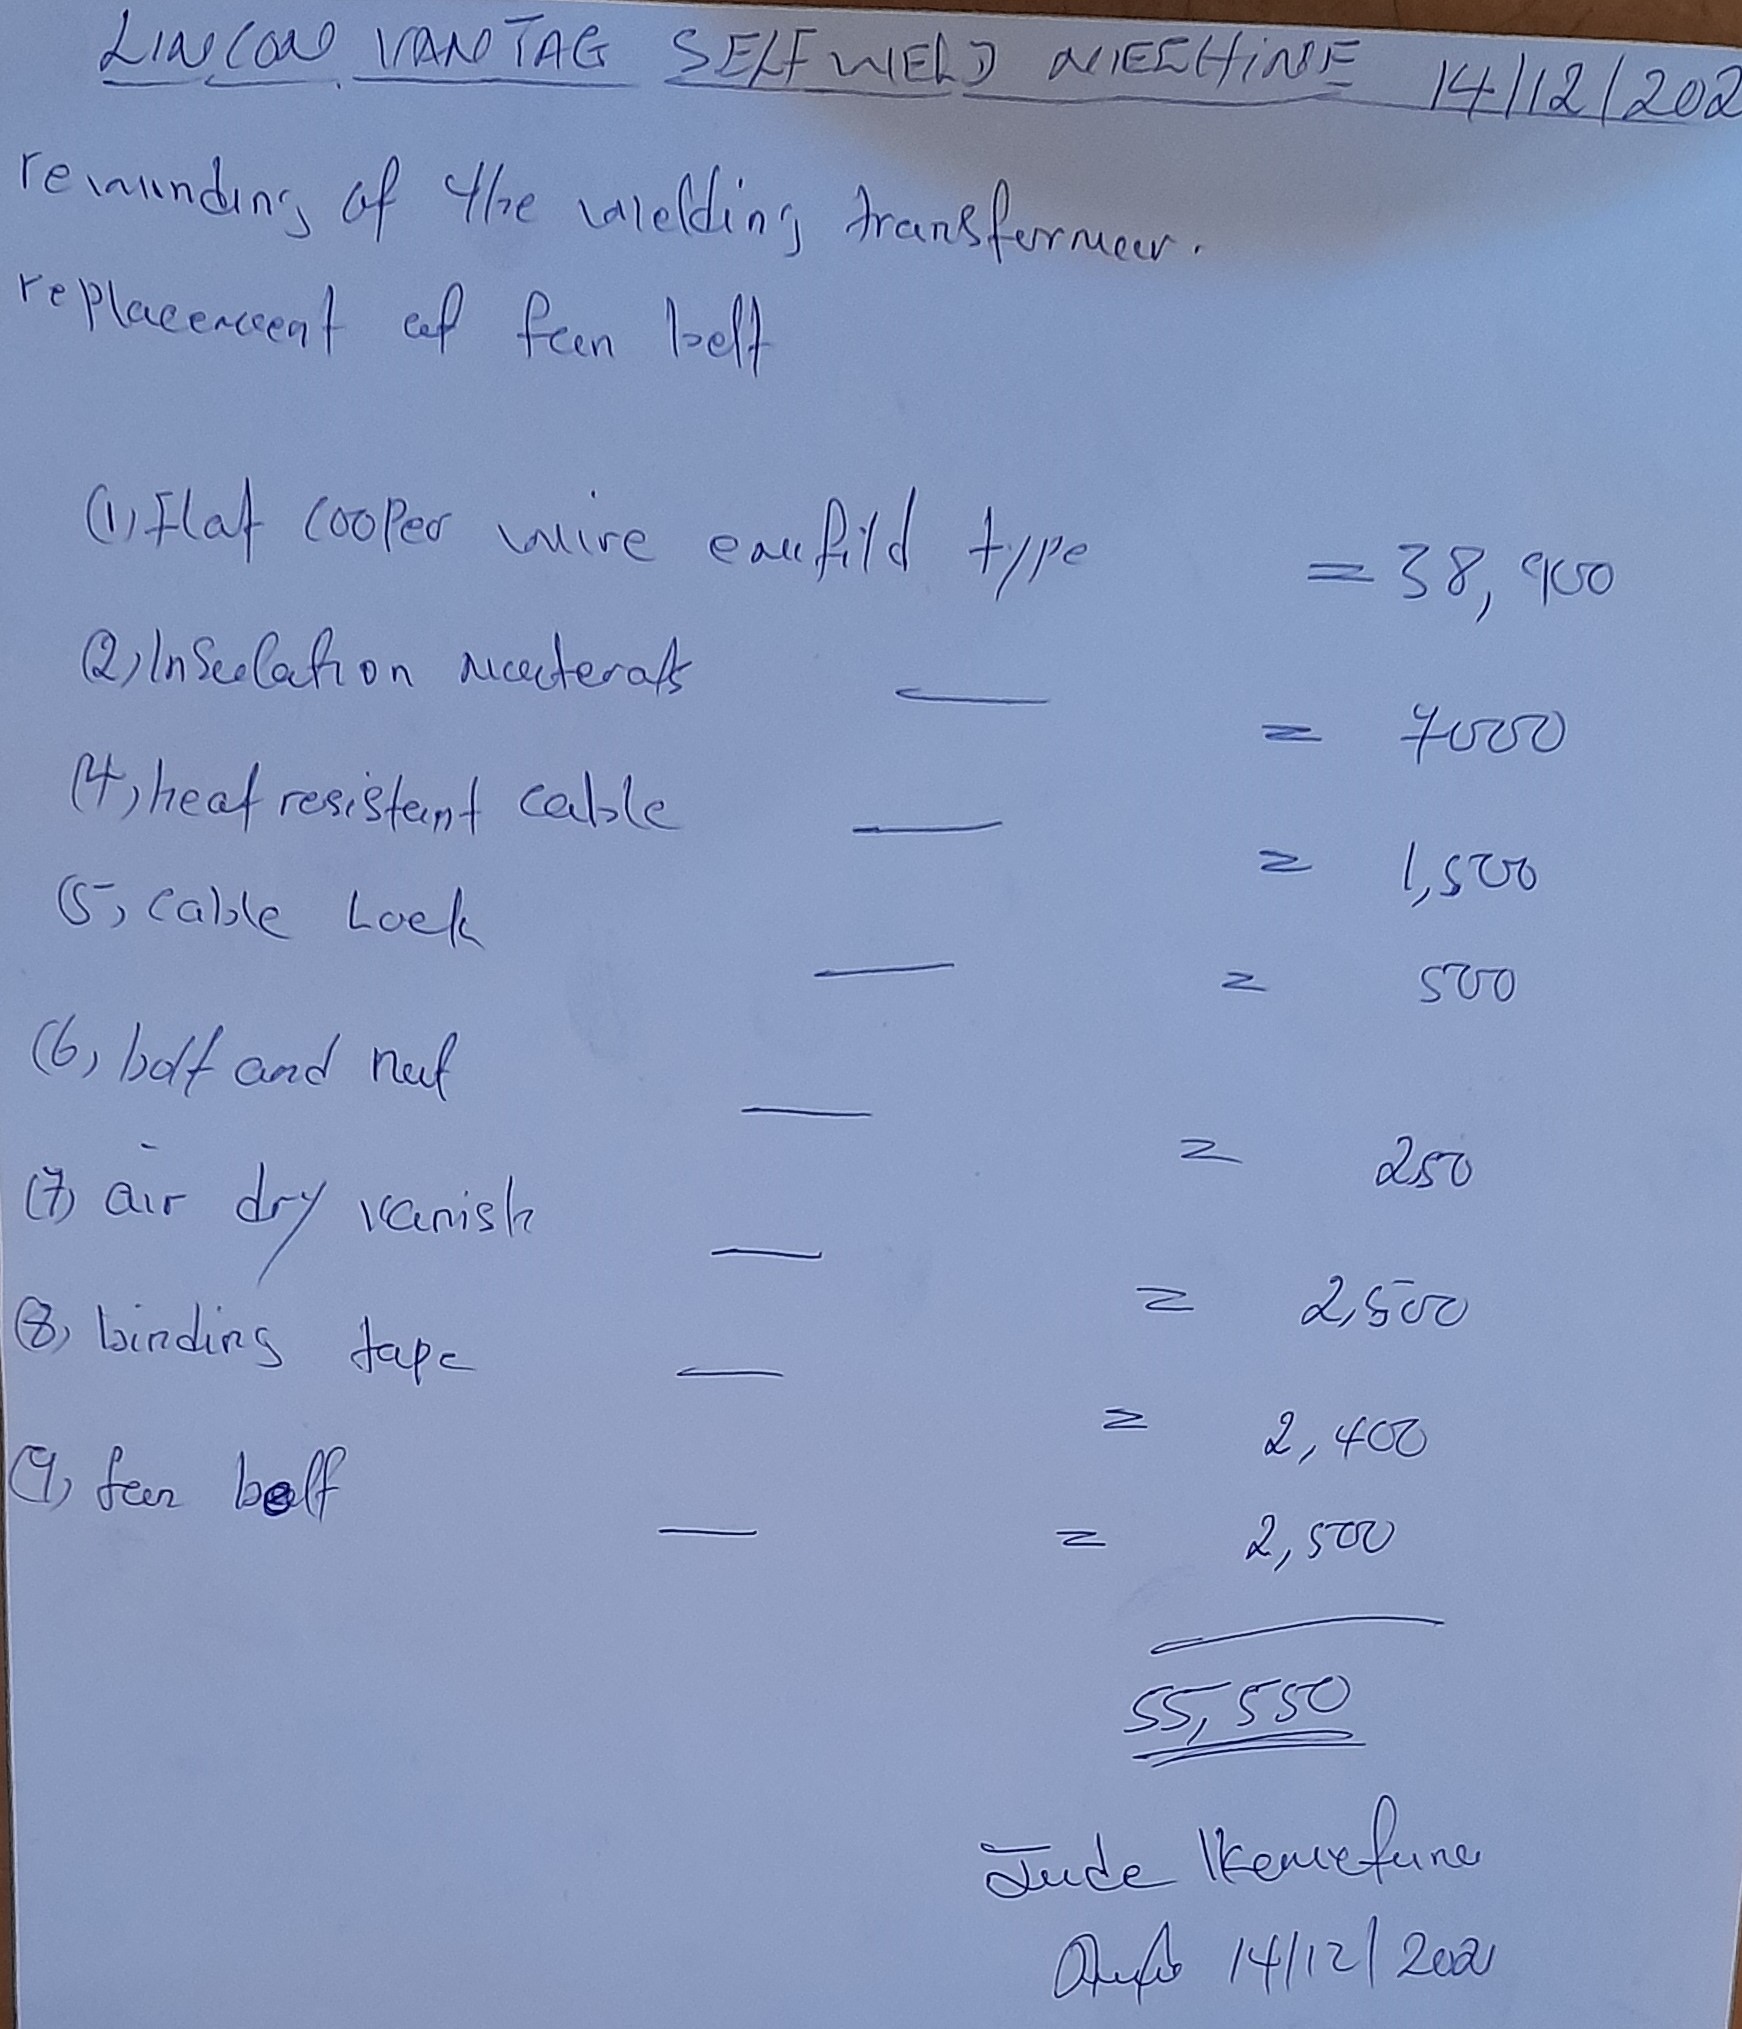 LINCON VANTAG SELF WELD MECHINE 14/12/202
rewinding of the welding transformer.
replacement of fan belt
(1) Flat cooper wire emfild type = 38,900
(2) Insulation materals — = 7000
(4) heat resistant cable — = 1,500
(5) Cable Lock — = 500
(6) bolt and nut — = 250
(7) air dry vanish — = 2,500
(8) binding tape — = 2,400
(9) fan belt — = 2,500
55,550
Jude Ikemefuna
14/12/2021